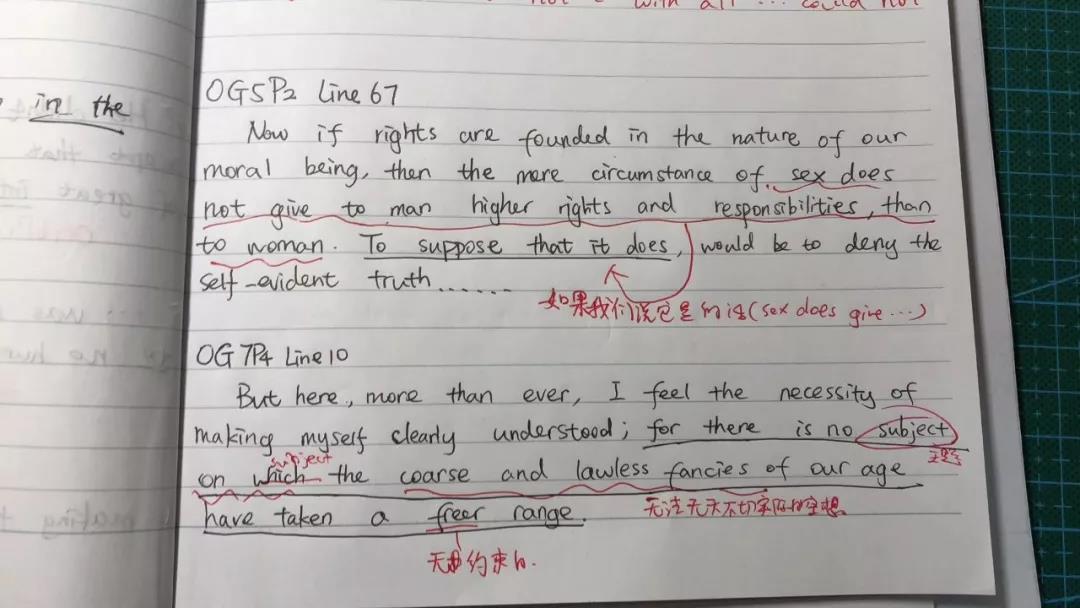 not with all ... could not
OG5P2 Line 67
in the
Now if rights are founded in the nature of our
moral being, then the mere circumstance of sex does
not give to man higher rights and responsibilities, than
to woman. To suppose that it does, would be to deny the
self-evident truth.......
如果我们说它是的话(sex does give ...)
OG 7P4 Line 10
But here, more than ever, I feel the necessity of
making myself clearly understood; for there is no subject
subject
主题
on which the coarse and lawless fancies of our age
have taken a freer range.
无法无天不切实际的空想
无约束的.